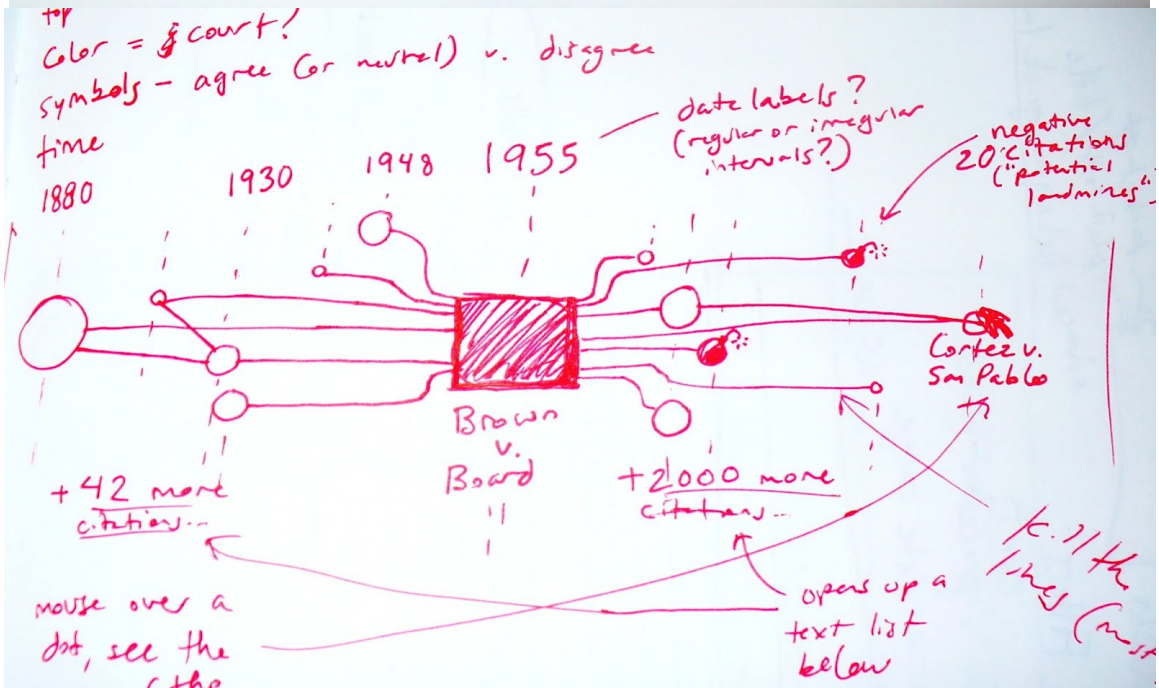 top
color = court?
symbols - agree (or neutral) v. disagree
time
1880
1930
1948
1955
date labels?
(regular or irregular
intervals?)
negative
20 citations
("potential
landmines")
Cortez v.
San Pablo
Brown
v.
Board
+42 more
citations...
+2000 more
citations...
mouse over a
dot, see the
(the
opens up a
text list
below
kill the
lines (most